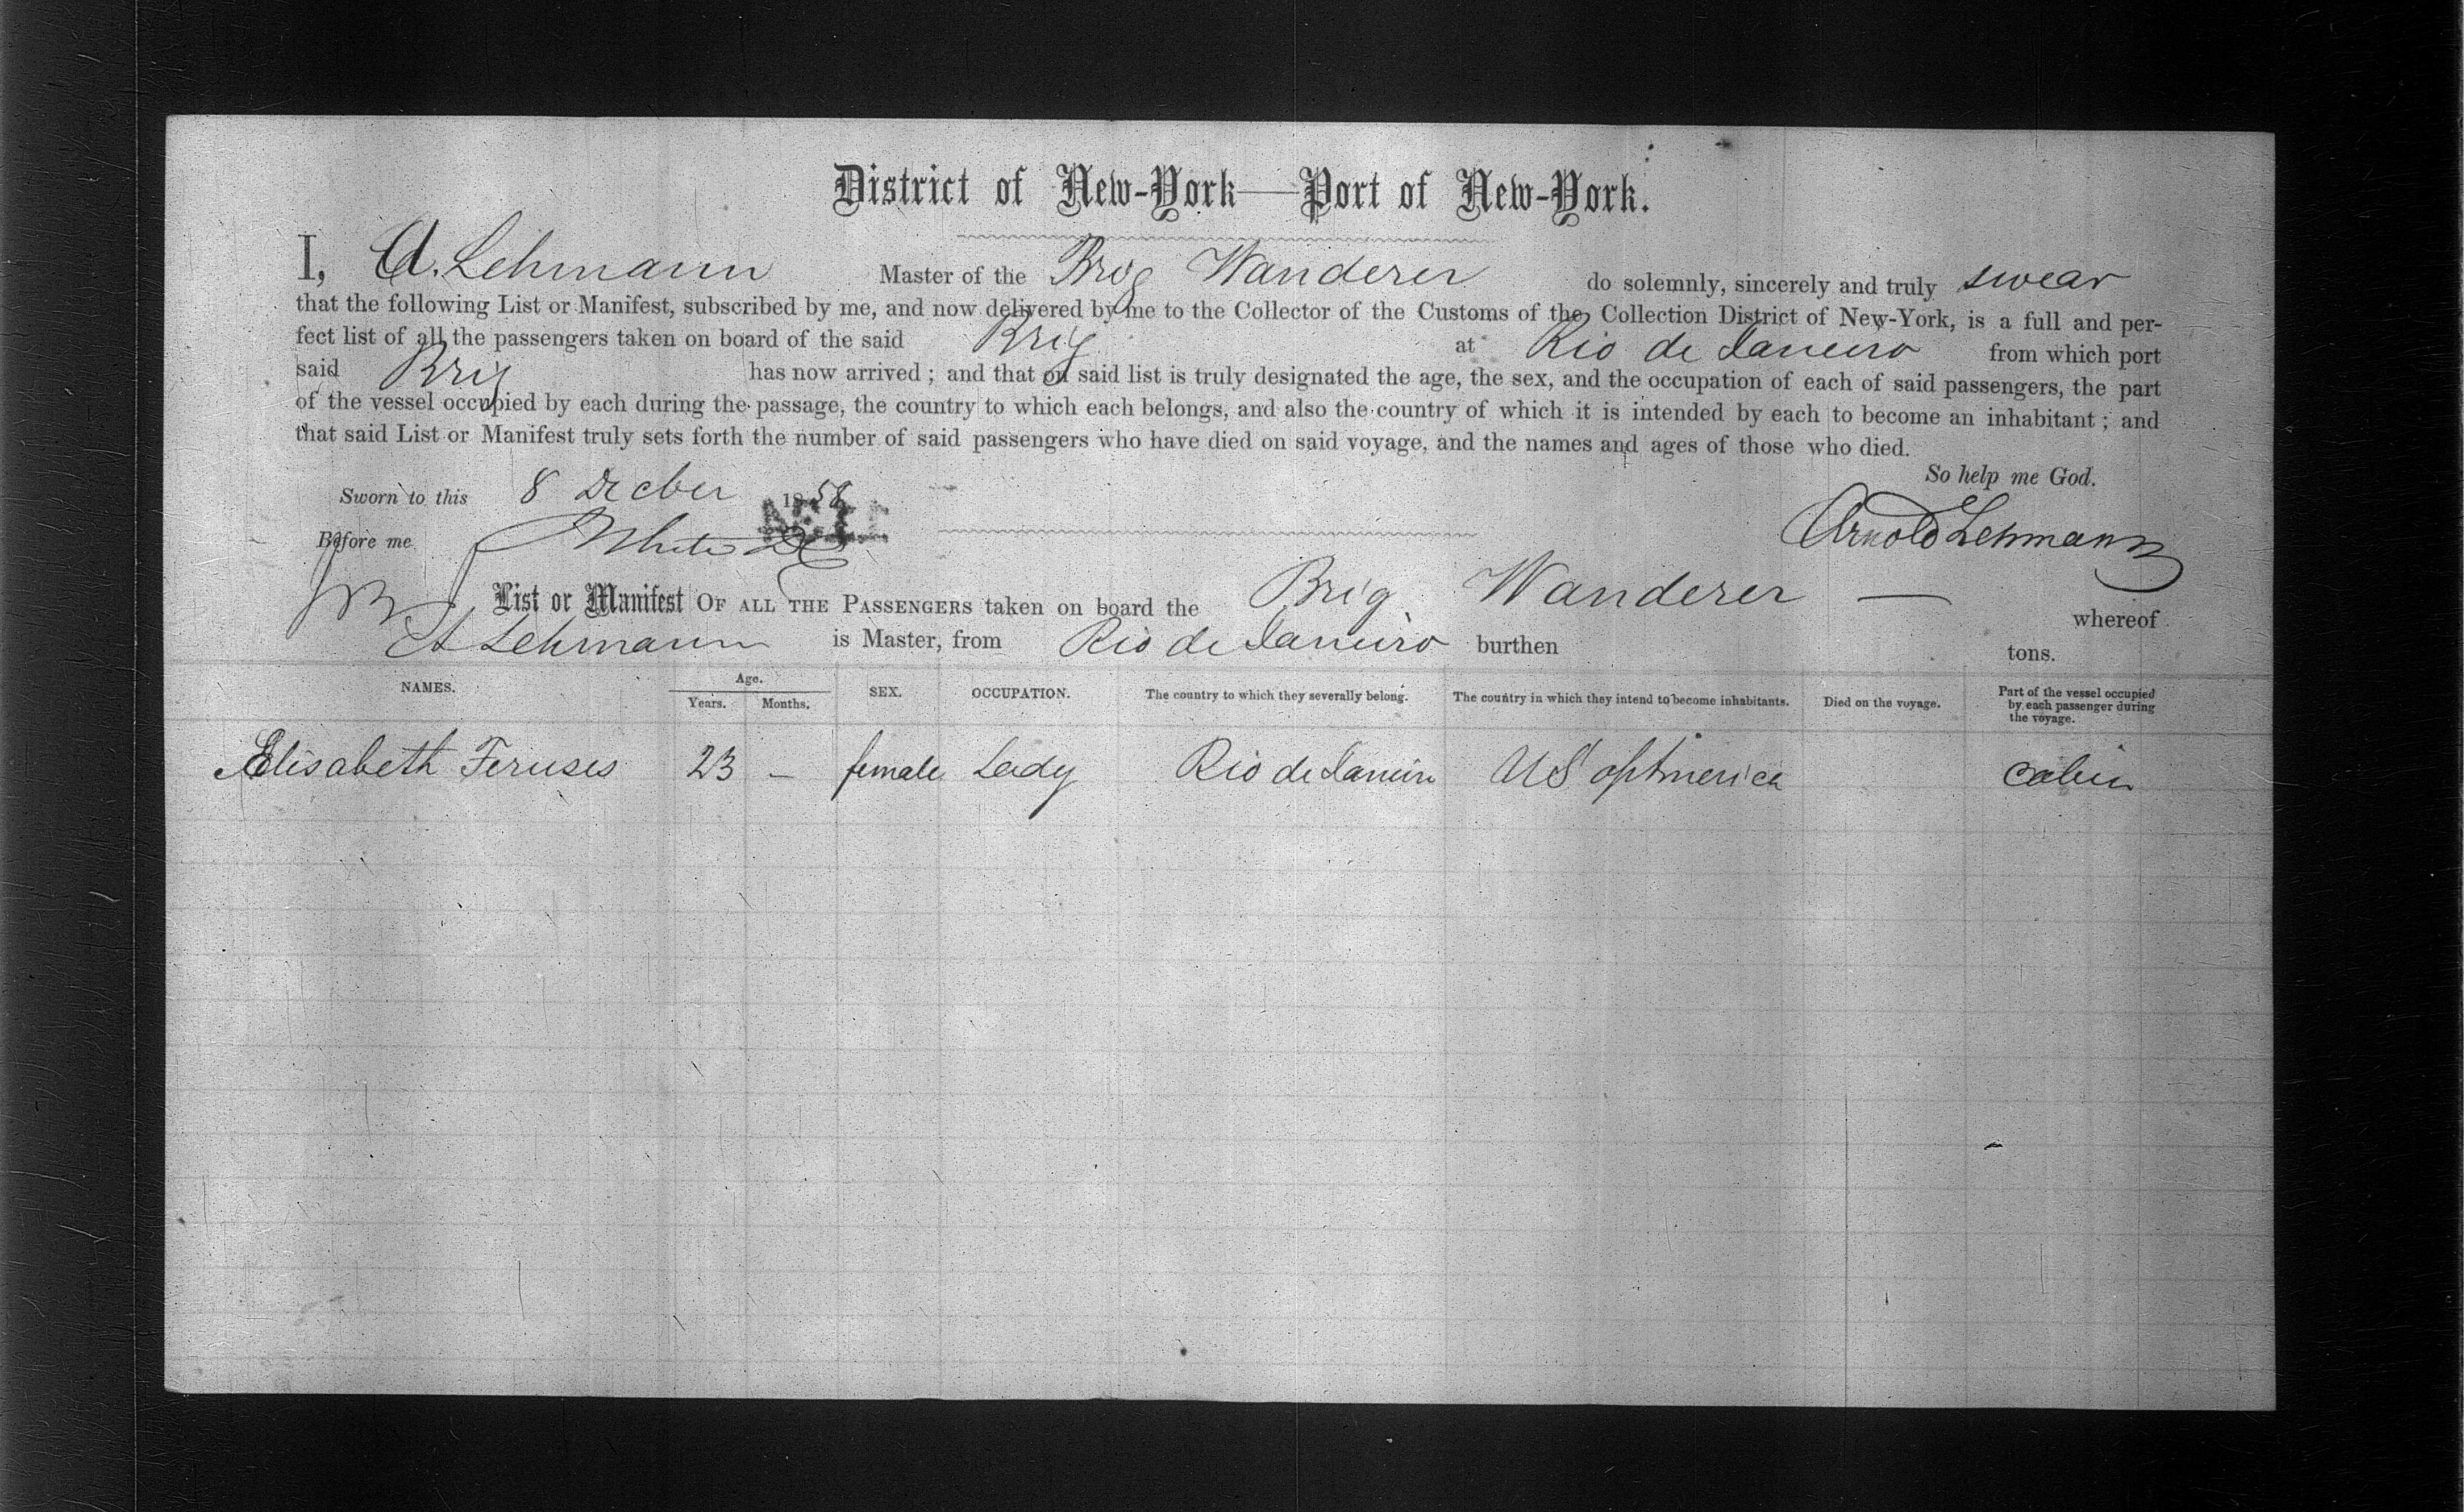 District of New-York—Port of New-York.
I, A. Lehmann Master of the Brig Wanderer do solemnly, sincerely and truly swear
that the following List or Manifest, subscribed by me, and now delivered by me to the Collector of the Customs of the Collection District of New-York, is a full and per-
fect list of all the passengers taken on board of the said Brig at Rio de Janeiro from which port
said Brig has now arrived ; and that on said list is truly designated the age, the sex, and the occupation of each of said passengers, the part
of the vessel occupied by each during the passage, the country to which each belongs, and also the country of which it is intended by each to become an inhabitant ; and
that said List or Manifest truly sets forth the number of said passengers who have died on said voyage, and the names and ages of those who died.
So help me God.
Sworn to this 8 Decber 1858
Before me
Arnold Lehmann
List or Manifest OF ALL THE PASSENGERS taken on board the Brig Wanderer — whereof
A Lehmann is Master, from Rio de Janeiro burthen tons.
NAMES. Age. Years. Months. SEX. OCCUPATION. The country to which they severally belong. The country in which they intend to become inhabitants. Died on the voyage. Part of the vessel occupied by each passenger during the voyage.
Elisabeth Feruses 23 — female Lady Rio de Janeiro US of America cabin